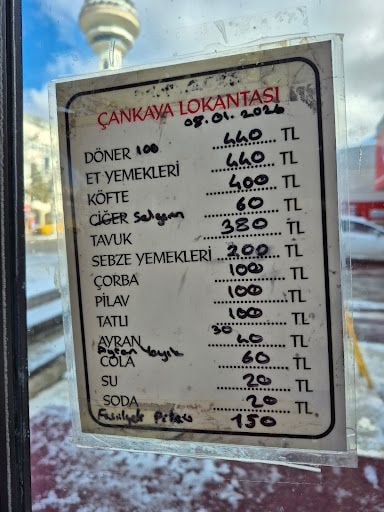 ÇANKAYA LOKANTASI
08.01.2026
DÖNER 100 440 TL
ET YEMEKLERİ 440 TL
KÖFTE 400 TL
CİĞER Salgam 60 TL
TAVUK 380 TL
SEBZE YEMEKLERİ 200 TL
ÇORBA 100 TL
PİLAV 100 TL
TATLI 100 TL
AYRAN 30 40 TL
Ayran Yayık
COLA 60 TL
SU 20 TL
SODA 20 TL
Fasülyeli Pilav 150